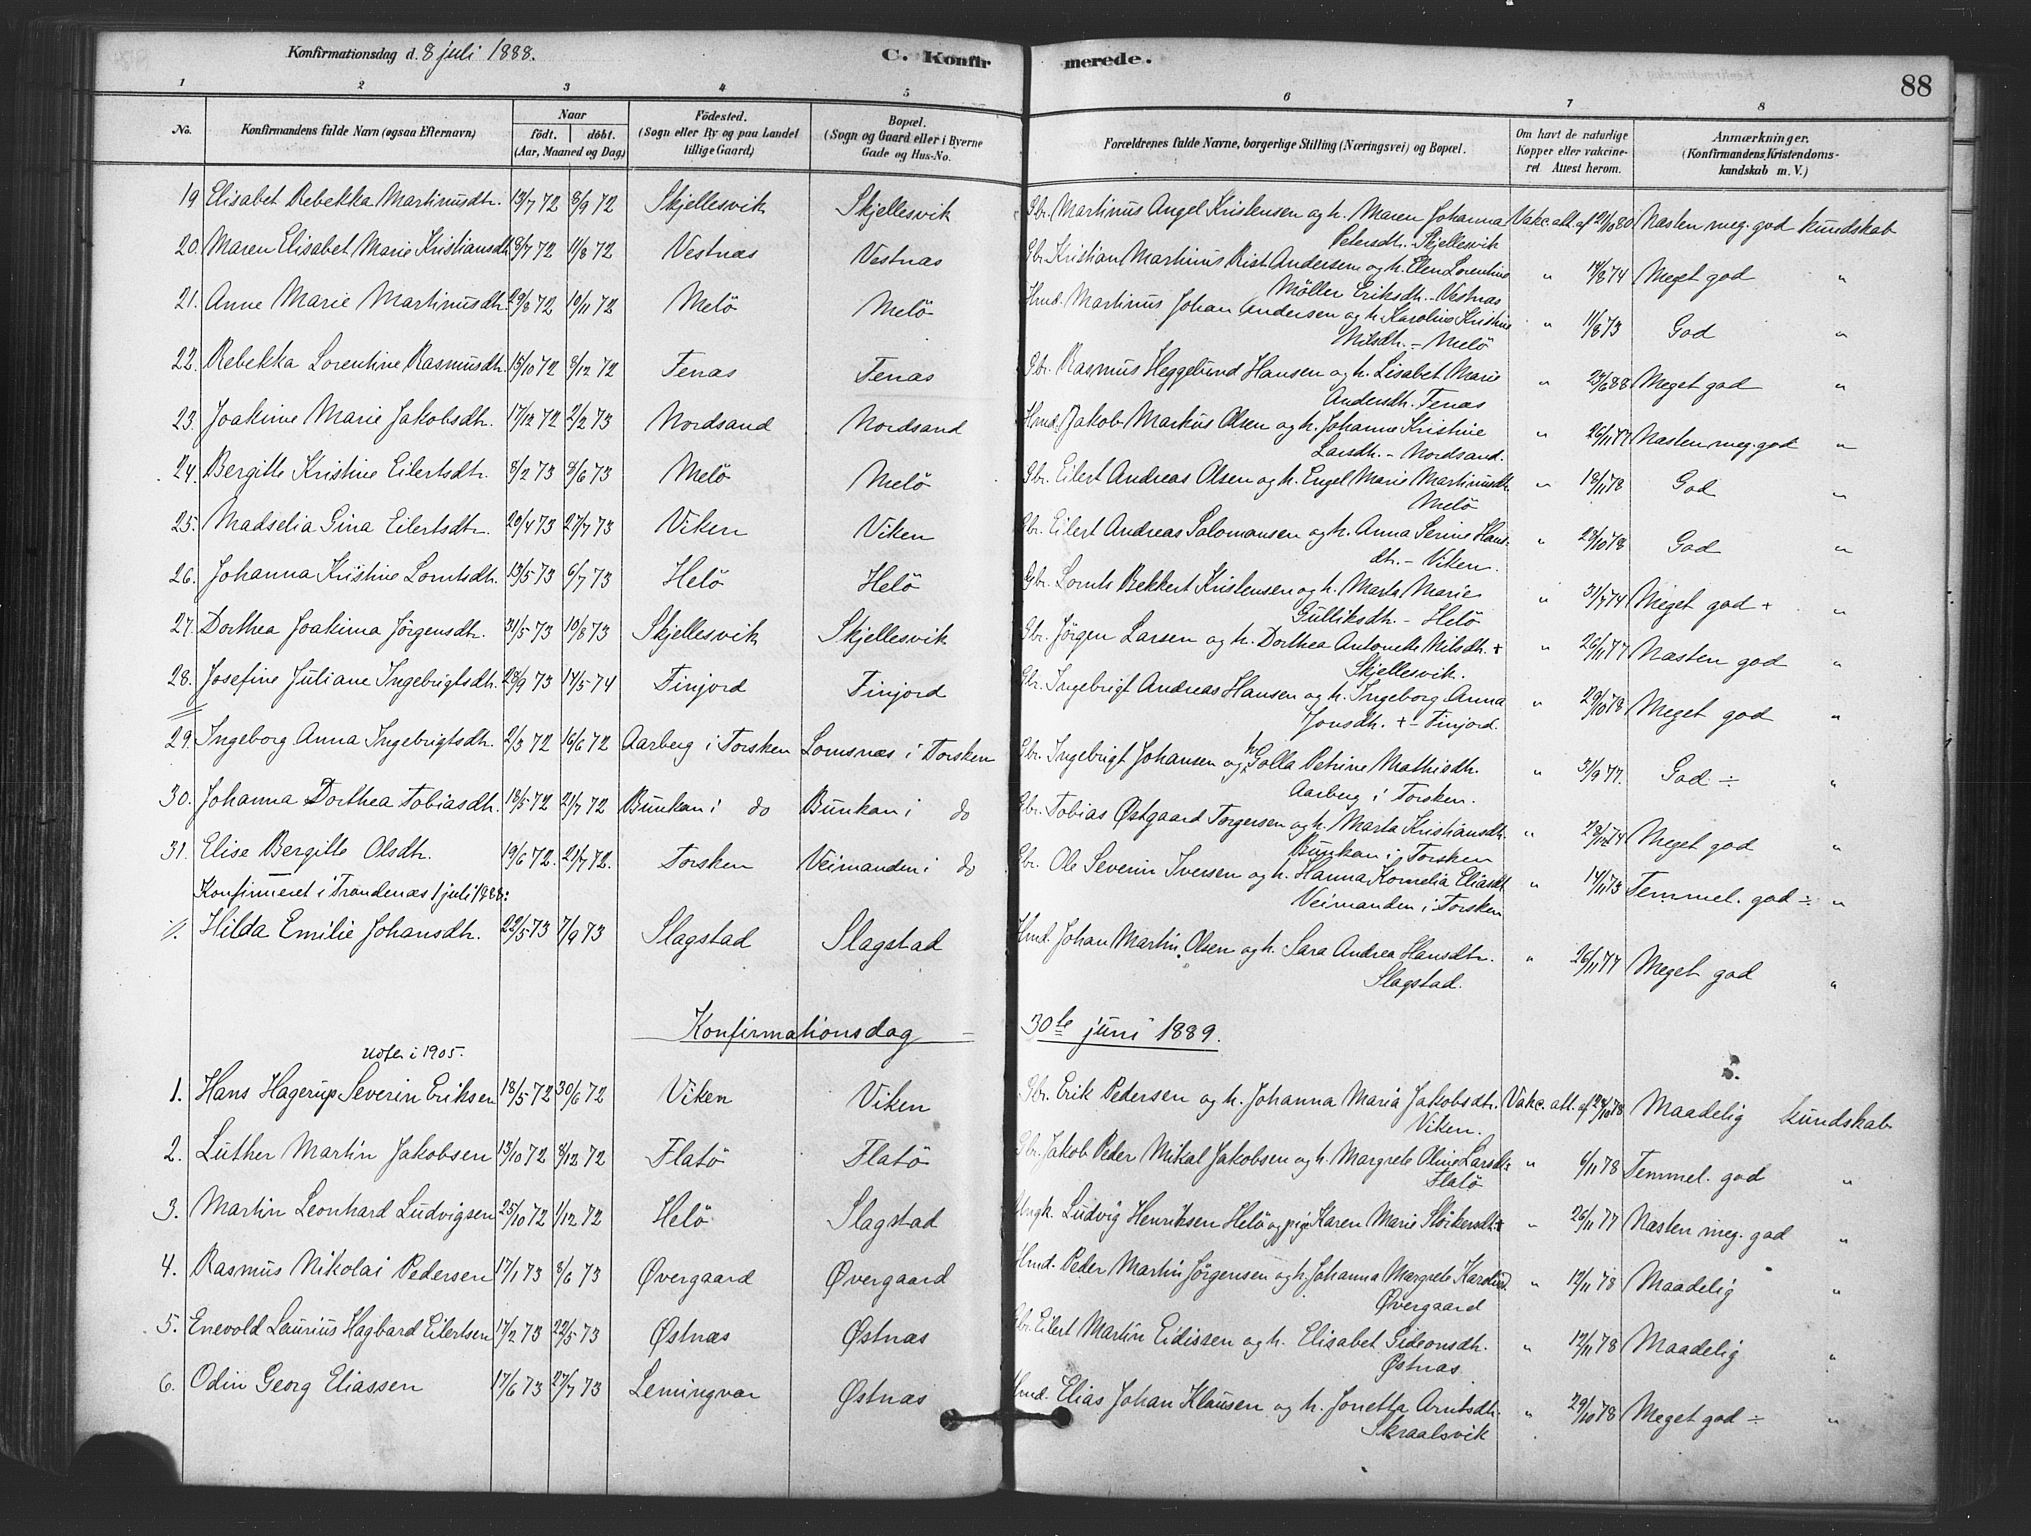 Konfirmationsdag d. 8 juli 1888. C. Konfirmerede. 88
1 2 3 4 5 6 7 8
No. Konfirmandens fulde Navn (ogsaa Efternavn) Naar født. døbt. (Aar, Maaned og Dag) Fødested. (Sogn eller By og paa Landet tillige Gaard) Bopæl. (Sogn og Gaard eller i Byerne Gade og Hus-No. Forældrenes fulde Navne, borgerlige Stilling (Næringsvei) og Bopæl. Om havt de naturlige Kopper eller vakcineret Attest herom. Anmærkninger. (Konfirmandens Kristendomskundskab m. V.)
19 Elisabet Rebekka Martinusdtr. 13/7 72 8/9 72 Skjellesvik Skjellesvik Gbr. Martinus Angel Kristensen og h. Maren Johanna Vakc. att. af 80 Næsten meg. god kundskab
Petersdtr. Skjellesvik
20. Maren Elisabet Marie Kristiansdtr 8/7 72 11/8 72 Vestnæs Vestnæs Gbr. Kristian Martinus Rist Andersen og h. Elen Lorentine " 14/8 74 Meget god "
Møller Eriksdtr. - Vestnæs
21. Anne Marie Martinusdtr. 29/8 72 10/11 72 Melö Melö Hmd. Martinus Johan Andersen og h. Karolius Kristine " 11/8 73 God "
Nilsdtr. - Melö
22. Rebekka Lorentine Rasmusdtr. 15/10 72 8/12 72 Tenæs Tenæs Gbr. Rasmus Heggelund Hansen og h. Lisabet Marie " 23/6 88 Meget god "
Andersdtr. Tenæs
23. Joakime Marie Jakobsdtr. 17/12 72 2/2 73 Nordsand Nordsand Hmd. Jakob Markus Olsen og h. Johanne Kristine " 26/11 77 Næsten meg. god "
Larsdtr. - Nordsand.
24. Bergitte Kristine Eilertsdtr. 8/2 73 8/6 73 Melö Melö Gbr. Eilert Andreas Olsen og h. Engel Marie Martinusdtr. " 18/11 78 God "
Melö
25. Madselia Gina Eilertsdtr. 20/4 73 27/7 73 Viken Viken Gbr. Eilert Andreas Salomonsen og h. Anna Serine Hans- " 28/10 78 God "
dtr. - Viken.
26. Johanna Kristine Lorntsdtr. 13/5 73 6/7 73 Helö Helö Gbr. Lornts Bekkert Kristensen og h. Marta Marie " 31/7 74 Meget god + "
Gulliksdtr. - Helö
27. Dorthea Joakima Jörgensdtr. 31/5 73 10/8 73 Skjellesvik Skjellesvik Gbr. Jörgen Larsen og h. Dorthea Antonette Nilsdtr. + " 26/11 77 Næsten god "
Skjellesvik.
28. Josefine Juliane Ingebrigtsdtr. 28/9 73 17/5 74 Finjord Finjord Gbr. Ingebrigt Andreas Hansen og h. Ingeborg Anna " 29/10 78 Meget god "
Jonsdtr. + - Finjord.
29. Ingeborg Anna Ingebrigtsdtr. 2/3 72 16/6 72 Aarberg i Torsken Lomsnæs i Torsken Gbr. Ingebrigt Johansen og h. Golla Petrine Mathisdtr. " 31/9 77. God ÷ "
Aarberg i Torsken.
30. Johanna Dorthea Tobiasdtr. 18/5 72 21/7 72 Bunkan i do Bunkan i do Gbr. Tobias Østgaard Torgersen og h. Marta Kristiansdtr. " 74 Meget god "
Bunkan i Torsken
31. Elise Bergitte Olsdtr. 19/6 72. 21/7 72. Torsken Veimanden i do Gbr. Ole Severin Iversen og h. Hanna Kornelia Eliasdtr " 14/11 73 Temmel. god ÷ "
Veimanden i Torsken
Konfirmeret i Trondenæs 1 juli 1888:
1. Hilda Emilie Johansdtr. 22/5 73 7/9 73 Slagstad Slagstad Hmd. Johan Martin Olsen og h. Sara Andrea Hansdtr. " 26/11 77 Meget god "
Slagstad.
Konfirmationsdag - 30te juni 1889.
i 1905.
1. Hans Hagerup Severin Eriksen 18/5 72 30/6 72 Viken Viken Gbr. Erik Pedersen og h. Johanna Maria Jakobsdtr. Vakc. att. af 24/10 78 Maadelig kundskab
Viken.
2. Luther Martin Jakobsen 13/10 72 8/12 72 Flatö Flatö Gbr. Jakob Peder Mikal Jakobsen og h. Margrete Oline Larsdtr " 6/11 78 Temmel. god "
Flatö
3. Martin Leonhard Ludvigsen 25/10 72 1/12 72 Helö Slagstad Ungk. Ludvig Henriksen Helö og pige Karen Marie " 26/11 77 Næsten meg. god "
4. Rasmus Nikolai Pedersen 17/1 73 8/6 73 Øvergaard Øvergaard Hmd. Peder Martin Jörgensen og h. Johanna Margrete " 12/11 78 Maadelig "
Øvergaard
5. Enevold Laurius Hagbard Eilertsen 17/2 73 22/5 73 Østnæs Østnæs Gbr. Eilert Martin Eidissen og h. Elisabet Gideonsdtr. " 12/11 78 Maadelig "
Østnæs.
6. Odin Georg Eliassen 17/6 73 27/7 73 Lemingvær Østnæs Hmd. Elias Johan Klausen og h. Jonetta Arntsdtr. " 29/10 78 Meget god ÷ "
Skraalsvik